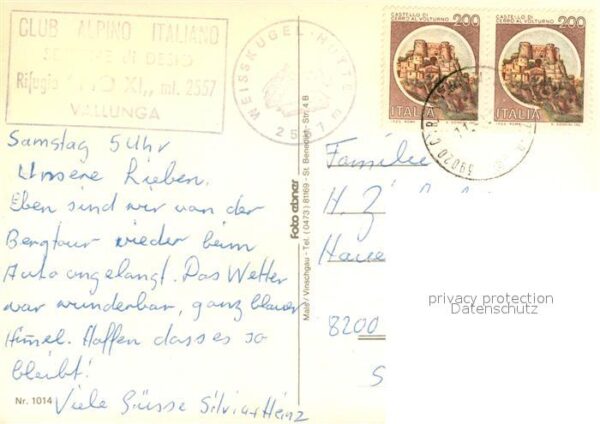 CLUB ALPINO ITALIANO
SEZIONE di DESIO
Rifugio PIO XI,, ml. 2557
VALLUNGA
WEISSKUGEL-HÜTTE
2557m
CASTELLO DI
CERRO AL VOLTURNO 200
ITALIA
CASTELLO DI
CERRO AL VOLTURNO 200
ITALIA
39020
Samstag 5 Uhr
Unsere Lieben.
Eben sind wir von der
Bergtour wieder beim
Auto angelangt. Das Wetter
war wunderbar, ganz blauer
Himel. Hoffen dass es so
bleibt!
Viele Grüsse Silvia + Heinz
Nr. 1014
foto ebner
Mals/Vinschgau - Tel. (0473) 81169 - St. Benedikt - Str. 4 B
Familie
H. Z
8200
S
privacy protection
Datenschutz